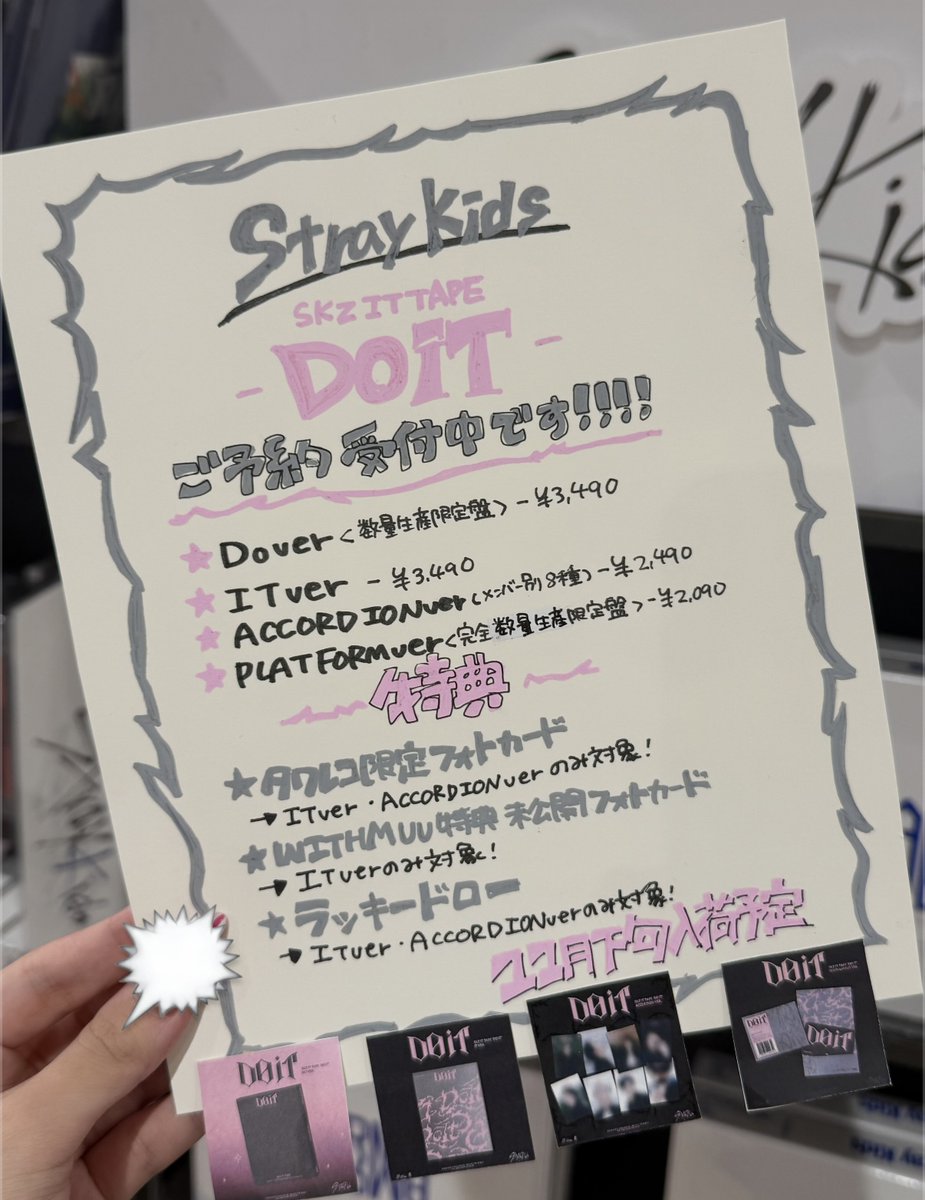 Stray Kids
SKZ IT TAPE
- DO IT -
ご予約受付中です!!!!
★ DO ver <数量生産限定盤> - ¥3,490
★ IT ver - ¥3,490
★ ACCORDION ver (メンバー別8種) - ¥2,490
★ PLATFORM ver <完全数量生産限定盤> - ¥2,090
特典
★ タワレコ限定フォトカード
→ IT ver・ACCORDION ver のみ対象!
★ WITHMUU特典 未公開フォトカード
→ IT ver のみ対象!
★ ラッキードロー
→ IT ver・ACCORDION ver のみ対象!
11月下旬入荷予定
DO IT
DO IT
DO IT
DO IT
DO IT
DO IT